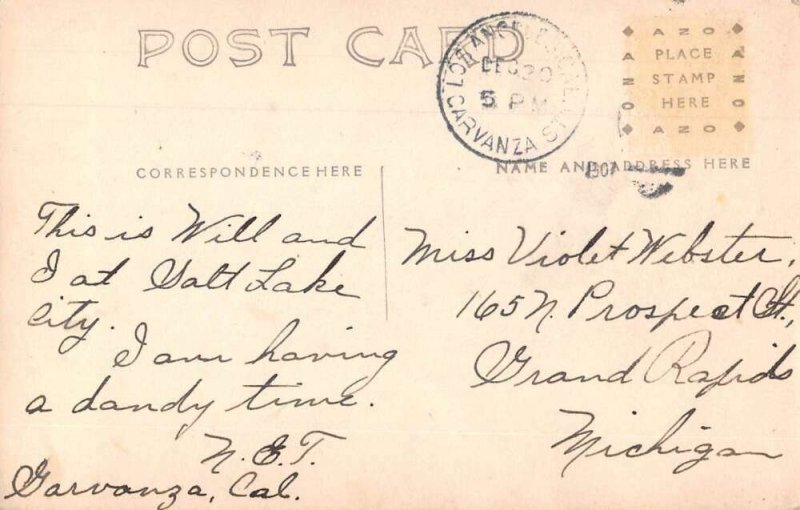 POST CARD
LOS ANGELES, CAL.
DEC 30
5 PM
GARVANZA STA.
AZO
AZO
AZO
AZO
PLACE
STAMP
HERE
CORRESPONDENCE HERE
NAME AND ADDRESS HERE
This is Will and
I at Salt Lake
City.
I am having
a dandy time.
N.E.T.
Garvanza, Cal.
Miss Violet Webster,
165 N. Prospect St.,
Grand Rapids
Michigan